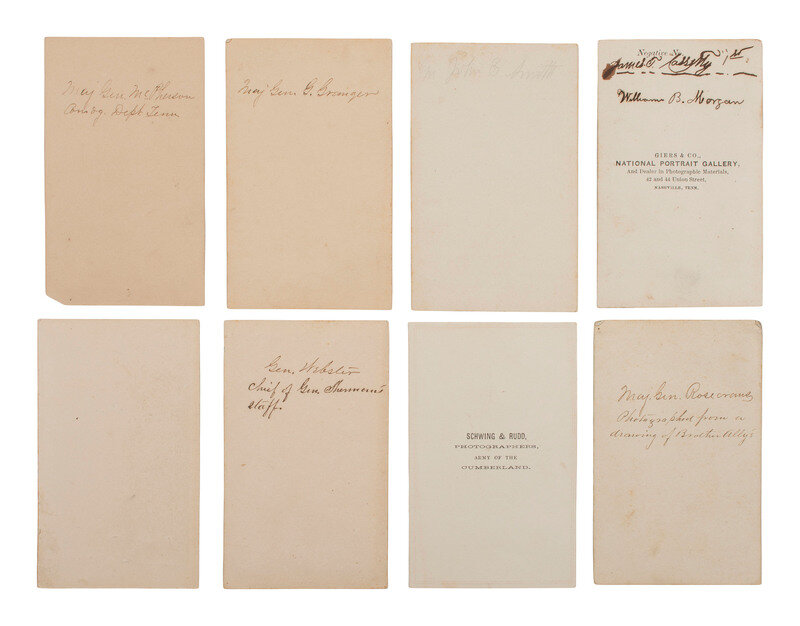 Maj Gen. McPherson
Comdg. Dept. Tenn
Maj Gen. G. Granger
John E. Smith
Negative No.
James T.
William B. Morgan
GIERS & CO.,
NATIONAL PORTRAIT GALLERY.
And Dealer in Photographic Materials,
42 and 44 Union Street,
NASHVILLE, TENN.
Gen. Webster
Chief of Gen. Sherman's
staff.
SCHWING & RUDD,
PHOTOGRAPHERS,
ARMY OF THE
CUMBERLAND.
Maj. Gen. Rosecrans
Photographed from a
drawing of Brother